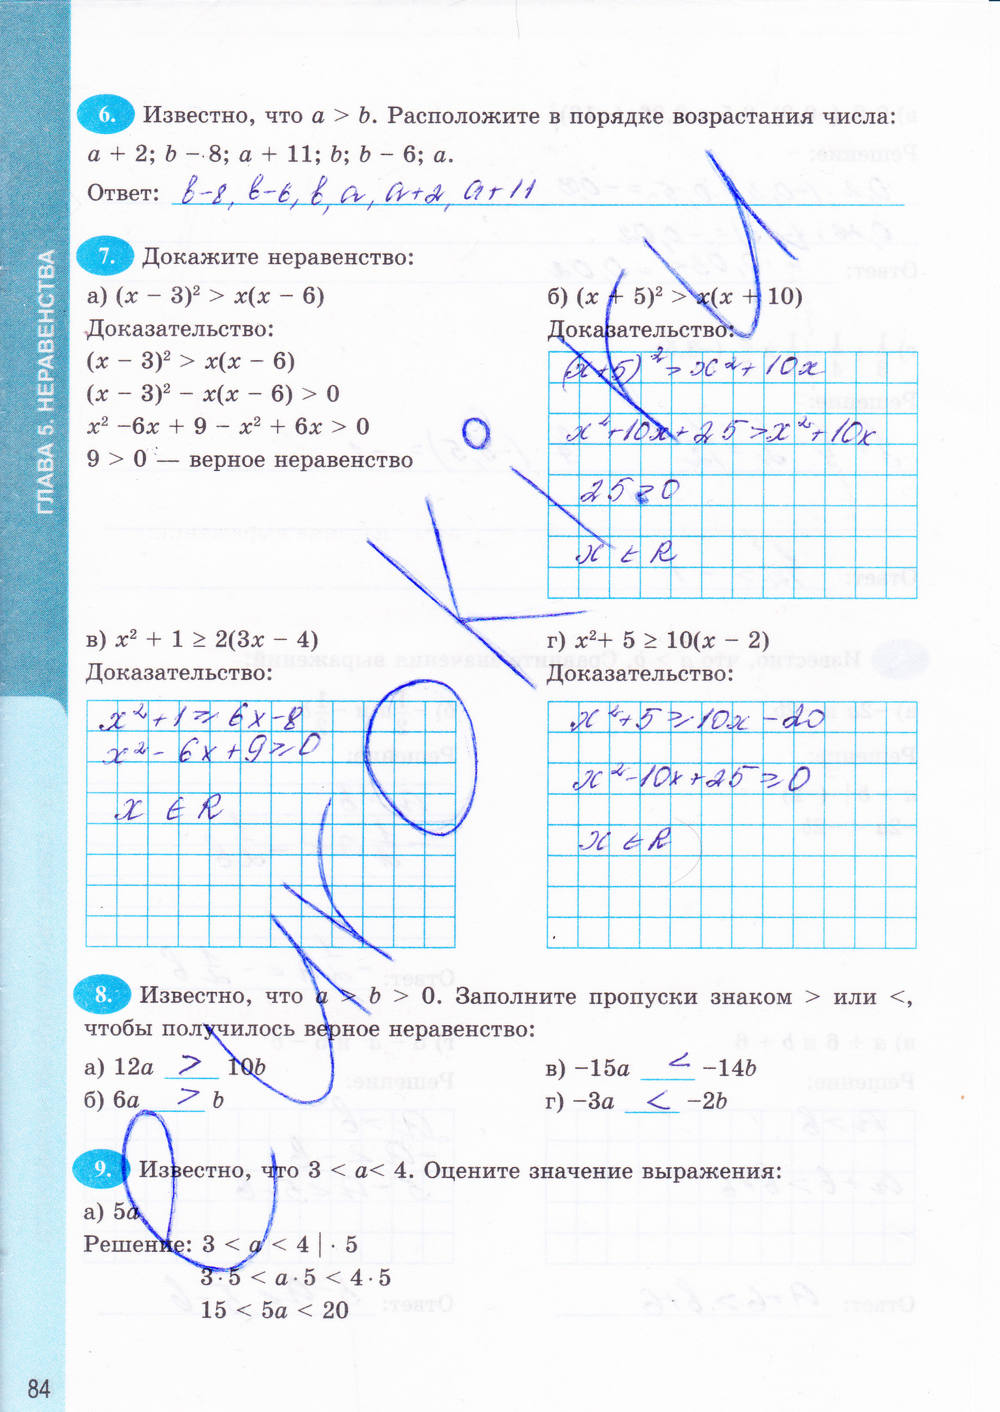 6. Известно, что a > b. Расположите в порядке возрастания числа:
a + 2; b − 8; a + 11; b; b − 6; a.
Ответ: b-8, b-6, b, a, a+2, a+11
7. Докажите неравенство:
а) (x − 3)² > x(x − 6)
Доказательство:
(x − 3)² > x(x − 6)
(x − 3)² − x(x − 6) > 0
x² −6x + 9 − x² + 6x > 0
9 > 0 — верное неравенство
б) (x + 5)² > x(x + 10)
Доказательство:
(x+5)² > x²+10x
x²+10x+25>x²+10x
25>0
x ∈ R
в) x² + 1 ≥ 2(3x − 4)
Доказательство:
x²+1≥6x-8
x²-6x+9≥0
x ∈ R
г) x²+ 5 ≥ 10(x − 2)
Доказательство:
x²+5≥10x-20
x²-10x+25≥0
x ∈ R
8. Известно, что a > b > 0. Заполните пропуски знаком > или <,
чтобы получилось верное неравенство:
а) 12a > 10b
б) 6a > b
в) −15a < −14b
г) −3a < −2b
9. Известно, что 3 < a< 4. Оцените значение выражения:
а) 5a
Решение: 3 < a < 4 | · 5
3·5 < a·5 < 4·5
15 < 5a < 20
ГЛАВА 5. НЕРАВЕНСТВА
84